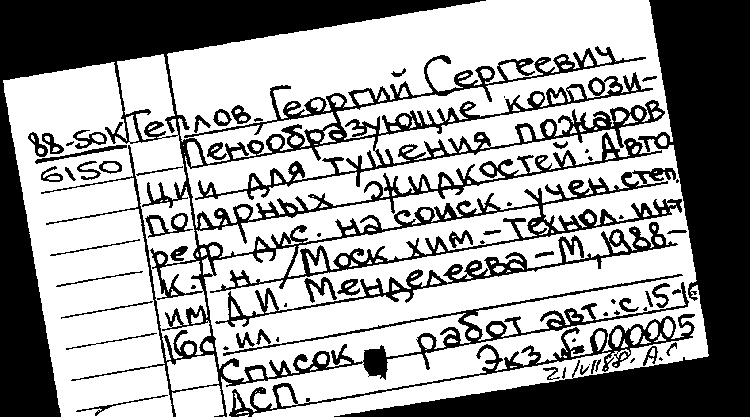 88-50К Теплов, Георгий Сергеевич.
6150 Пенообразующие компози-
ции для тушения пожаров
полярных жидкостей: Авто-
реф. дис. на соиск. учен. степ.
к.т.н. /Моск. хим.-технол. ин-т
им Д.И. Менделеева.-М., 1988.-
16с. ил.
Список работ авт.: с. 15-16
Экз. №000005
ДСП.